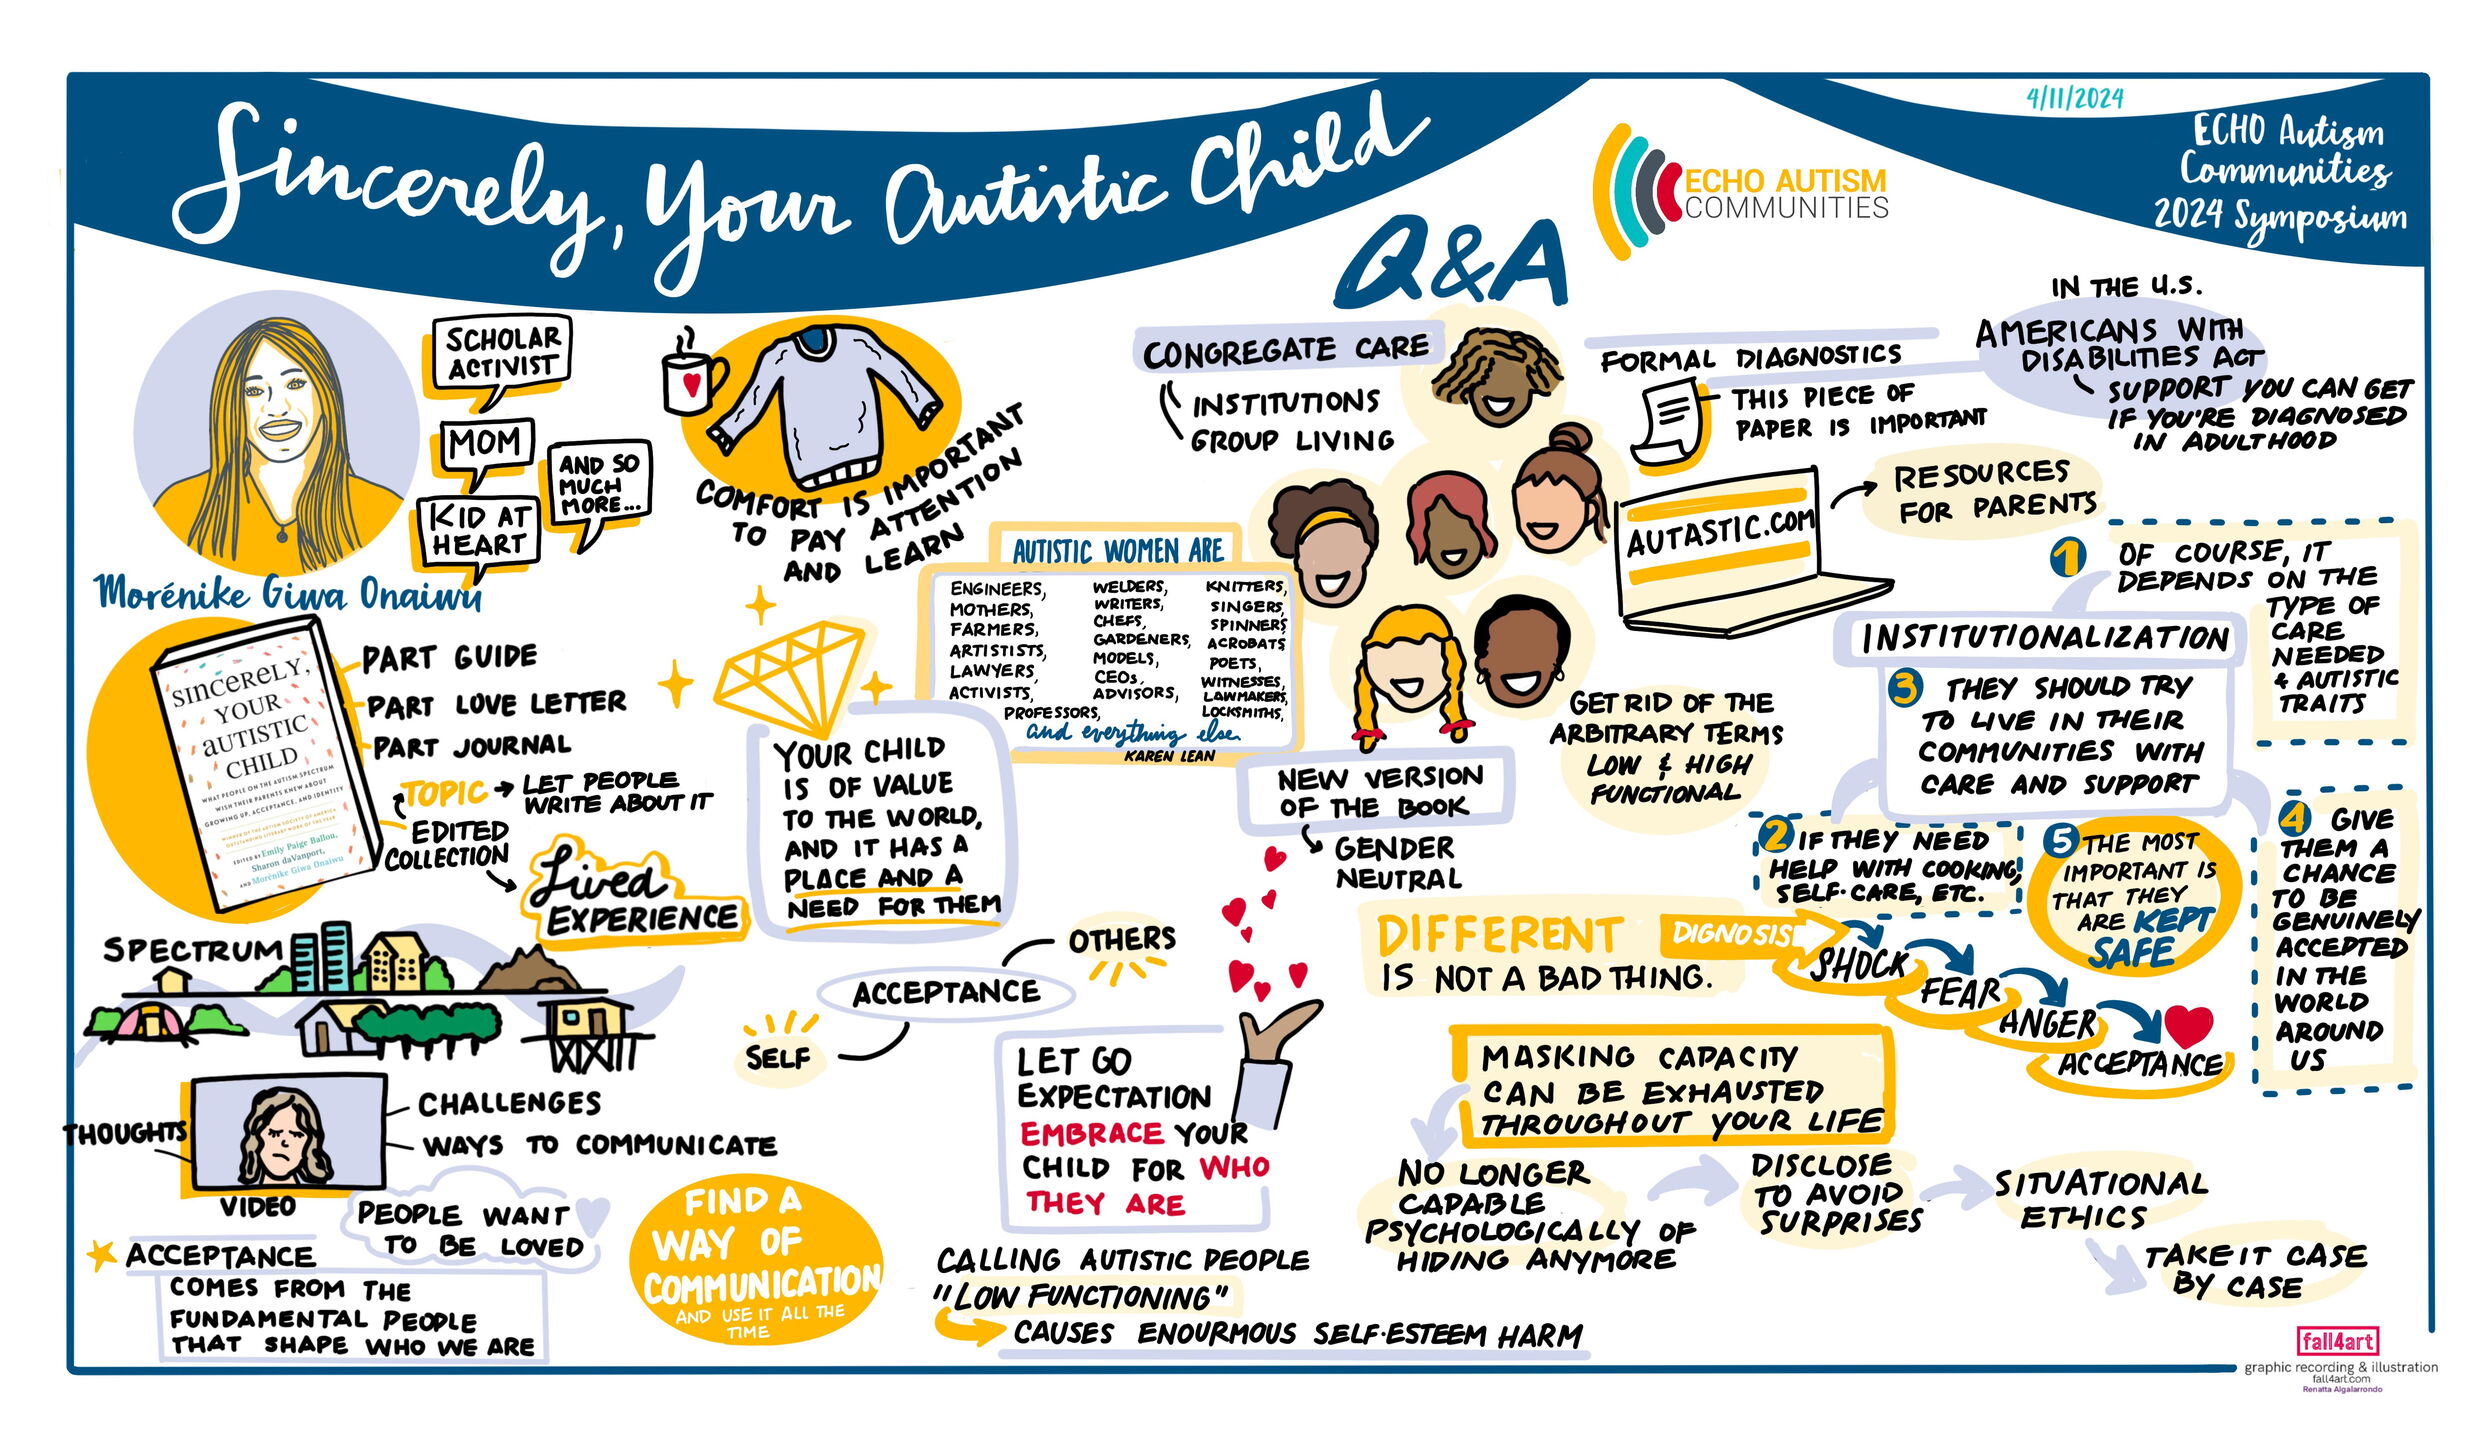 Sincerely, Your Autistic Child
4/11/2024
ECHO Autism
Communities
2024 Symposium
ECHO AUTISM
COMMUNITIES
Q&A
SCHOLAR
ACTIVIST
MOM
KID AT
HEART
AND SO
MUCH
MORE...
Morénike Giwa Onaiwu
COMFORT IS IMPORTANT
TO PAY ATTENTION
AND LEARN
SINCERELY,
YOUR
AUTISTIC
CHILD
WHAT PEOPLE ON THE AUTISM SPECTRUM
WISH THEIR PARENTS KNEW ABOUT
GROWING UP, ACCEPTANCE, AND IDENTITY
WINNER OF THE AUTISM SOCIETY OF AMERICA
OUTSTANDING LITERARY WORK OF THE YEAR
EDITED BY Emily Paige Ballou,
Sharon daVanport,
AND Morénike Giwa Onaiwu
PART GUIDE
PART LOVE LETTER
PART JOURNAL
TOPIC → LET PEOPLE
WRITE ABOUT IT
EDITED
COLLECTION
Lived
EXPERIENCE
SPECTRUM
THOUGHTS
VIDEO
CHALLENGES
WAYS TO COMMUNICATE
PEOPLE WANT
TO BE LOVED
ACCEPTANCE
COMES FROM THE
FUNDAMENTAL PEOPLE
THAT SHAPE WHO WE ARE
FIND A
WAY OF
COMMUNICATION
AND USE IT ALL THE
TIME
YOUR CHILD
IS OF VALUE
TO THE WORLD,
AND IT HAS A
PLACE AND A
NEED FOR THEM
OTHERS
ACCEPTANCE
SELF
AUTISTIC WOMEN ARE
ENGINEERS,
MOTHERS,
FARMERS,
ARTISTISTS,
LAWYERS,
ACTIVISTS,
PROFESSORS,
WELDERS,
WRITERS,
CHEFS,
GARDENERS,
MODELS,
CEOs,
ADVISORS,
KNITTERS,
SINGERS,
SPINNERS
ACROBATS
POETS,
WITNESSES,
LAWMAKERS,
LOCKSMITHS,
and everything else.
KAREN LEAN
LET GO
EXPECTATION
EMBRACE YOUR
CHILD FOR WHO
THEY ARE
CALLING AUTISTIC PEOPLE
"LOW FUNCTIONING"
CAUSES ENOURMOUS SELF-ESTEEM HARM
CONGREGATE CARE
INSTITUTIONS
GROUP LIVING
NEW VERSION
OF THE BOOK
GENDER
NEUTRAL
FORMAL DIAGNOSTICS
THIS PIECE OF
PAPER IS IMPORTANT
IN THE U.S.
AMERICANS WITH
DISABILITIES ACT
SUPPORT YOU CAN GET
IF YOU'RE DIAGNOSED
IN ADULTHOOD
AUTASTIC.COM
RESOURCES
FOR PARENTS
GET RID OF THE
ARBITRARY TERMS
LOW & HIGH
FUNCTIONAL
INSTITUTIONALIZATION
1 OF COURSE, IT
DEPENDS ON THE
TYPE OF
CARE
NEEDED
& AUTISTIC
TRAITS
2 IF THEY NEED
HELP WITH COOKING,
SELF-CARE, ETC.
3 THEY SHOULD TRY
TO LIVE IN THEIR
COMMUNITIES WITH
CARE AND SUPPORT
4 GIVE
THEM A
CHANCE
TO BE
GENUINELY
ACCEPTED
IN THE
WORLD
AROUND
US
5 THE MOST
IMPORTANT IS
THAT THEY
ARE KEPT
SAFE
DIFFERENT
IS NOT A BAD THING.
DIGNOSIS
SHOCK
FEAR
ANGER
ACCEPTANCE
MASKING CAPACITY
CAN BE EXHAUSTED
THROUGHOUT YOUR LIFE
NO LONGER
CAPABLE
PSYCHOLOGICALLY OF
HIDING ANYMORE
DISCLOSE
TO AVOID
SURPRISES
SITUATIONAL
ETHICS
TAKE IT CASE
BY CASE
fall4art
graphic recording & illustration
fall4art.com
Renatta Algalarrondo